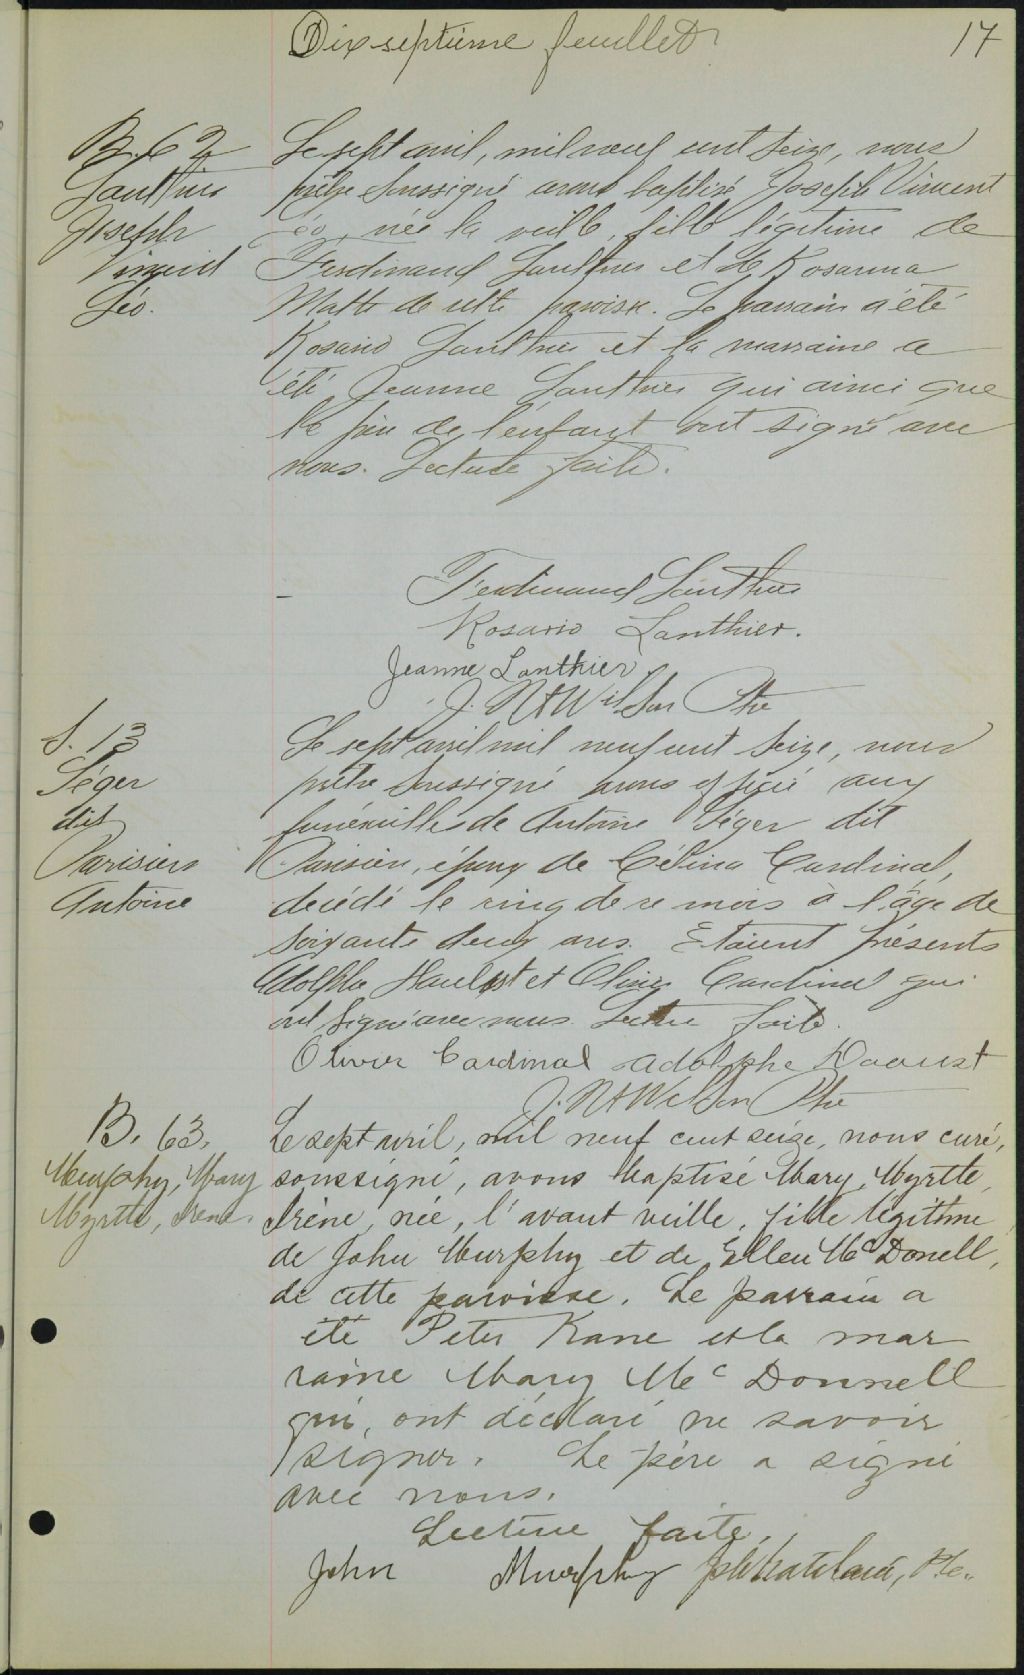 Dix-septième feuillet
17
B. 62
Lanthier
Joseph
Vincent
Léo.
Le sept avril, mil neuf cent seize, nous
prêtre soussigné avons baptisé Joseph Vincent
Léo, née la veille, fille légitime de
Ferdinand Lanthier et de Rosanna
Matte de cette paroisse. Le parrain a été
Rosario Lanthier et la marraine a
été Jeanne Lanthier qui ainsi que
le père de l'enfant ont signé avec
nous. Lecture faite.
Ferdinand Lanthier
Rosario Lanthier.
Jeanne Lanthier
Wilson Ptre
S. 13
Léger
dit
Parisien
Antoine
Le sept avril mil neuf cent seize, nous
prêtre soussigné avons officié aux
funérailles de Antoine Léger dit
Parisien, époux de Célina Cardinal,
décédé le cinq de ce mois à l'âge de
soixante deux ans. Etaient présents
Adolphe et Cardinal qui
ont signé avec nous. Lecture faite.
Olivier Cardinal Adolphe Daoust
Wilson Ptre
B. 63.
Murphy, Mary
Myrtle, Irene
Le sept avril, mil neuf cent seize, nous curé,
soussigné, avons baptisé Mary, Myrtle,
Irène, née, l'avant veille, fille légitime
de John Murphy et de Ellen Mc Donell,
de cette paroisse. Le parrain a
été Peter Kane et la mar
raine Mary Mc Donnell
qui, ont déclaré ne savoir
signer. Le père a signé
avec nous.
Lecture faite,
John Murphy Ptre.